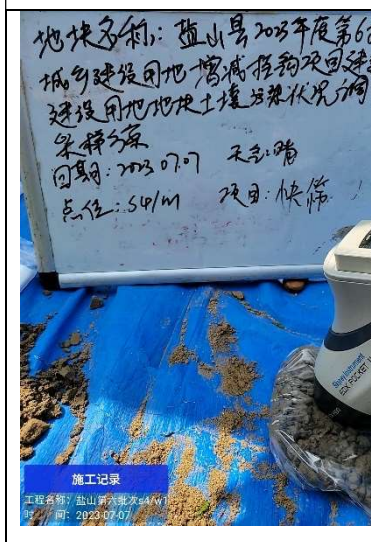 地块名称：盐山县2023年度第6
城乡建设用地增减挂钩项目建
建设用地地块土壤污染状况调
采样方案
日期：2023.07.07 天气：晴
点位：S4/W1 项目：快筛
施工记录
工程名称：盐山第六批次s4/w1
时 间：2023-07-07